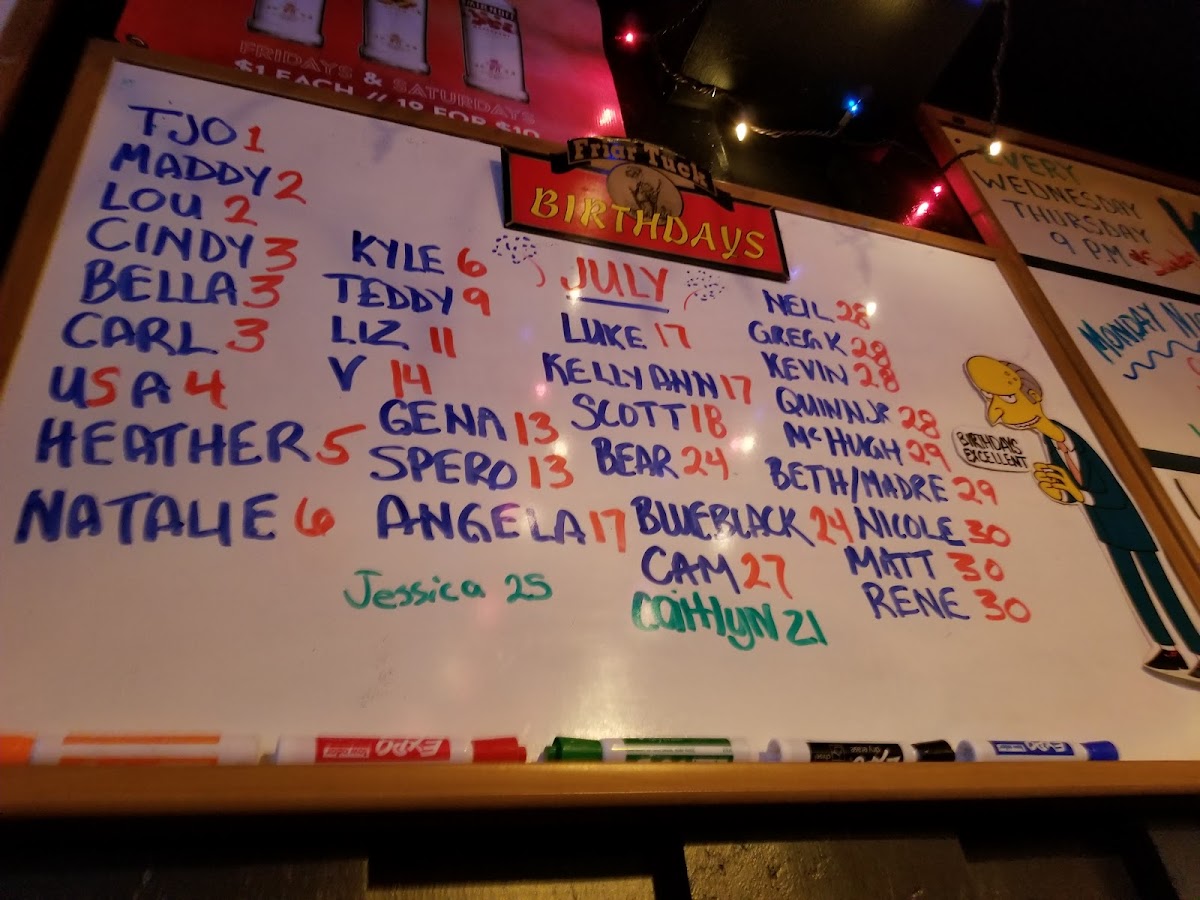 FRIDAYS & SATURDAYS
$1 EACH // 10 FOR $10
Friar Tuck
BIRTHDAYS
JULY
TJO 1
MADDY 2
LOU 2
CINDY 3
BELLA 3
CARL 3
USA 4
HEATHER 5
NATALIE 6
KYLE 6
TEDDY 9
LIZ 11
V 14
GENA 13
SPERO 13
ANGELA 17
Jessica 25
LUKE 17
KELLY ANN 17
SCOTT 18
BEAR 24
BLUEBLACK 24
CAM 27
CAitlyN 21
NEIL 28
GREG K 28
KEVIN 28
QUINN JR 28
McHUGH 29
BETH/MADRE 29
NICOLE 30
MATT 30
RENE 30
BIRTHDAYS
EXCELLENT
EVERY
WEDNESDAY
THURSDAY
9 P.M.
MONDAY
EXPO
EXPO